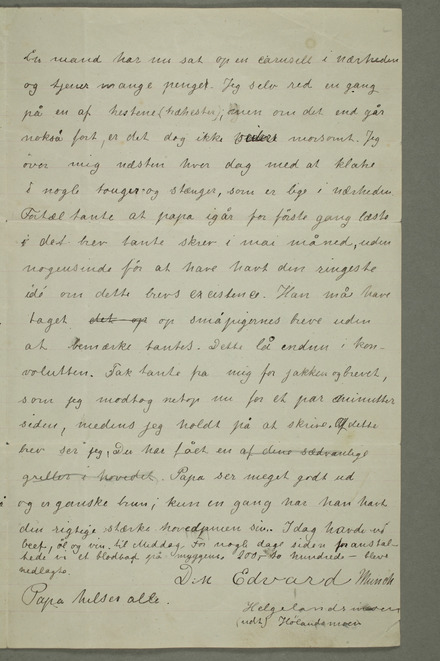 En mand har nu sat op en carusell i nærheden
og tjener mange penge. Jeg selv red en gang
på en af hestene (træheste); men om det end går
nokså fort, er det dog ikke videre morsomt. Jeg
över mig næsten hver dag med at klatre
i nogle touger og stænger, som er lige i nærheden.
Fortæl tante at papa igår for förste gang læste
i det brev tante skrev i mai måned, uden
nogensinde för at have havt den ringeste
idé om dette brevs existence. Han må have
taget det op op småpigernes breve uden
at bemærke tantes. Dette lå endnu i kon-
volutten. Tak tante fra mig for jakken og brevet,
som jeg modtog netop nu for et par minutter
siden, medens jeg holdt på at skrive. Af dette
brev ser jeg, Du har fået en af dine sædvanlige
griller i hovedet. Papa ser meget godt ud
og er ganske brun; kun en gang har han havt
den rigtige stærke hovedpinen sin. Idag havde vi
beef, öl og vin til Middag. For nogle dage siden anstal-
tede vi et blodbad på myggene 200, to hundrede – blev
nedlagte.
Din Edvard Munch
Papa hilser alle.
Helgelandsmoen
(udt) Hölandsmoen